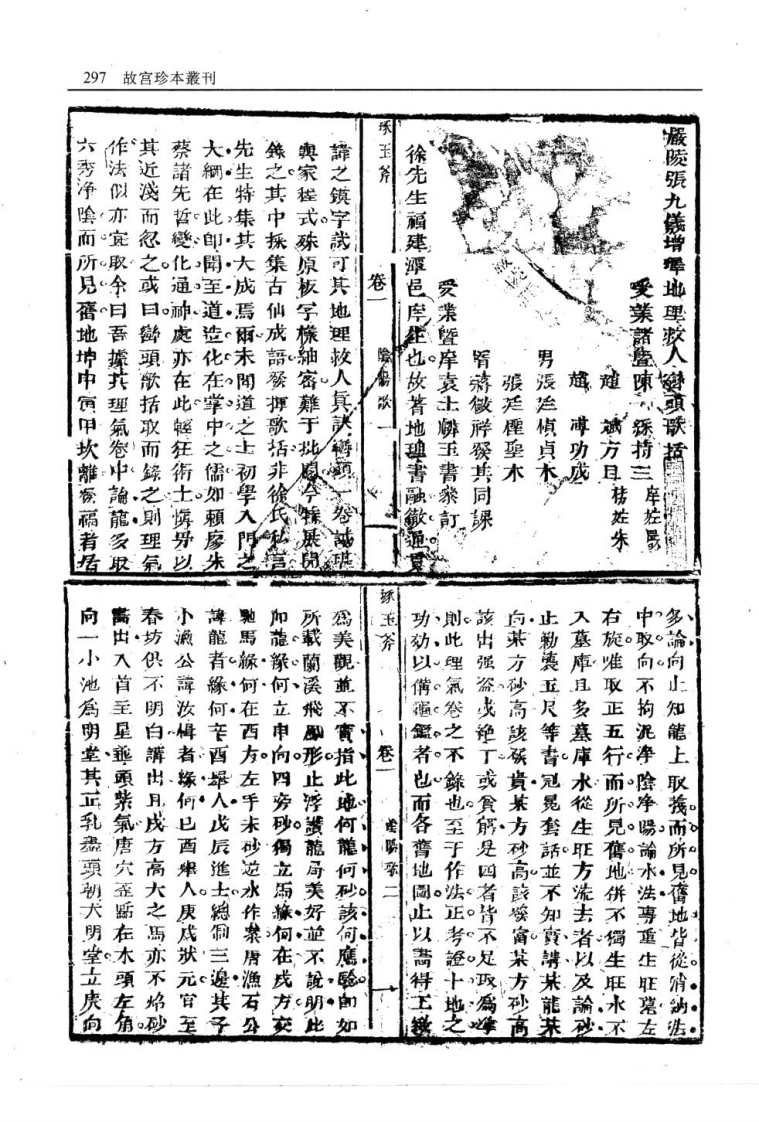 297 故宮珍本叢刊
嚴陵張九儀增釋地理救人巒頭歌括
受業諸暨陳
趙
趙
男張廷楨貞木
張廷
共同課
受業暨岸袁士麟玉書
徐先生福建潭邑庠生也故著地理書融徹
琢玉斧 卷一 陰陽歌 一
諱之鎮字試可其地理救人真訣巒頭一卷誠堪
輿家程式殊原板字樣細密難于批閱今
錄之其中採集古仙成語發揮歌括非徐氏私言
先生特集其大成焉爾未聞道之士初學入門之
大綱在此即聞至道造化在掌中之儒如賴廖朱
蔡諸先哲變化通神處亦在此輕狂術士慎毋以
其近淺而忽之或曰巒頭歌括取而錄之則理氣
作法似亦宜取余曰吾據其理氣卷中論龍多取
六秀淨陰而所見舊地坤申寅甲坎離發福者居
多論向止知龍上取義而所見舊地皆從消納法
中取向不拘泥淨陰淨陽論水法專重生旺墓左
右旋唯取正五行而所見舊地併不獨生旺水不
入墓庫且多墓庫水從生旺方流去者以及論砂
止勦襲玉尺等書冠冕套話並不知實講某龍某
向某方砂高該發貴某方砂高該發富某方砂高
該出强盜或絶丁或貧窮是四者皆不足取爲學
則此理氣卷之不錄也至于作法正考證十地之
功効以備龜鑑者也而各舊地圖止以畵得工緻
琢玉斧 卷一 陰陽歌 二
爲美觀並不實指此地何龍何砂該何應驗即如
所載蘭溪飛鳳形止浮讚龍局美好並不說明此
何龍緣何立申向四旁砂獨立馬緣何在戌方交
馳馬緣何在西方左手未砂逆水作案唐漁石公
諱龍者緣何辛酉舉人戊辰進士總制三邊其子
小漁公諱汝楫者緣何巳酉舉人庚戌狀元官至
春坊俱不明白講出且戌方高大之馬亦不焰砂
畵出入首主星垂頭紫氣唐穴歪點在木頭左角
向一小池爲明堂其正乳垂頭朝大明堂立庚向